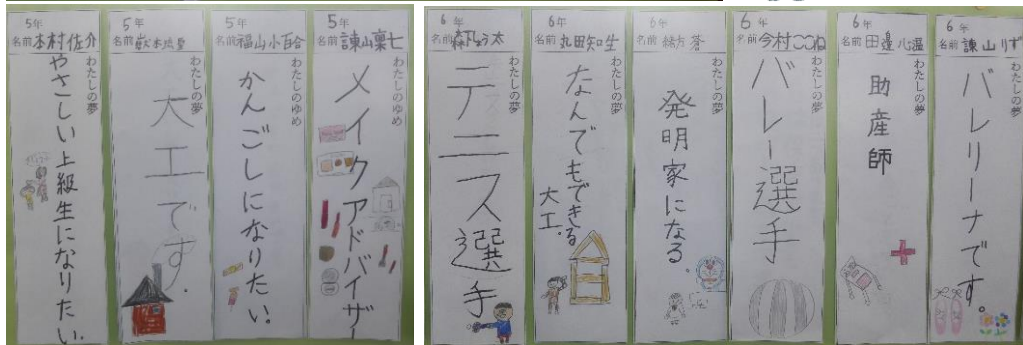 5年
名前 本村佐介
わたしの夢
やさしい上級生になりたい。
5年
名前
わたしの夢
大工です。
5年
名前 福山小百合
わたしのゆめ
かんごしになりたい。
5年
名前 諌山稟七
わたしのゆめ
メイクアドバイザー
6年
名前 森下しょう太
わたしの夢
テニス選手
6年
名前 丸田知生
わたしの夢
なんでもできる
大工。
6年
名前 緒方蒼
わたしの夢
発明家になる。
6年
名前 今村ここね
わたしの夢
バレー選手
6年
名前 田邉心温
わたしの夢
助産師
6年
名前 諌山りず
わたしの夢
バレリーナです。